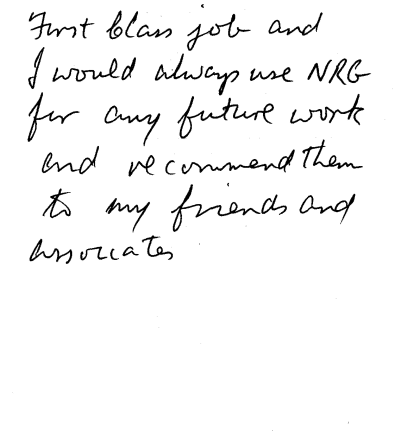 First Class job and
I would always use NRG
for any future work
and recommend them
to my friends and
associates